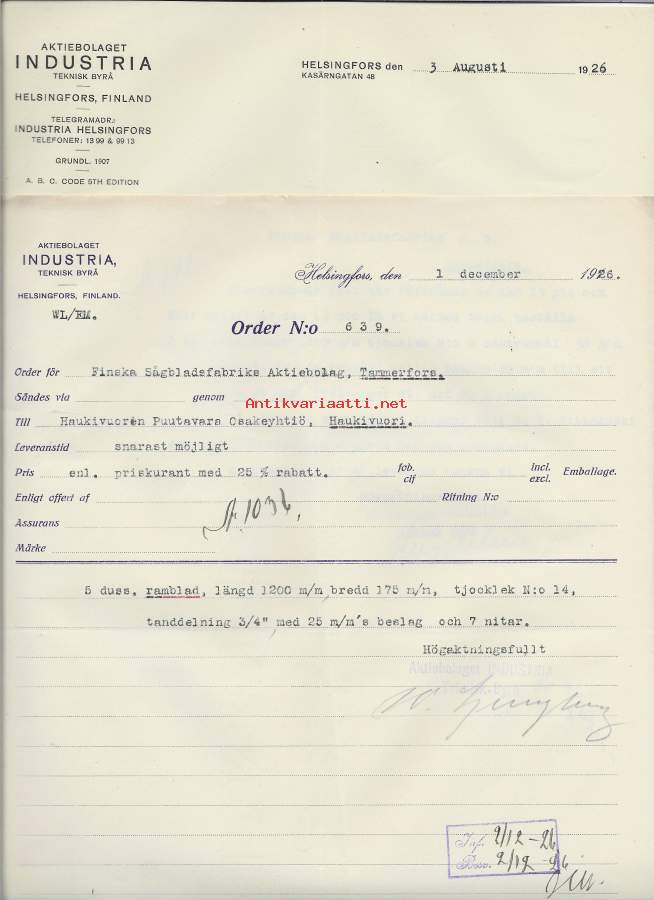 AKTIEBOLAGET
INDUSTRIA
TEKNISK BYRÅ
HELSINGFORS, FINLAND
TELEGRAMADR.:
INDUSTRIA HELSINGFORS
TELEFONER: 13 99 & 99 13
GRUNDL. 1907
A. B. C. CODE 5TH EDITION
HELSINGFORS den 3 Augusti 1926
KASÄRNGATAN 48
AKTIEBOLAGET
INDUSTRIA,
TEKNISK BYRÅ
HELSINGFORS, FINLAND.
WL/EM.
Helsingfors, den 1 december 1926.
Order N:o 639.
Order för Finska Sågbladsfabriks Aktiebolag, Tammerfors.
Sändes via genom
Antikvariaatti.net
Till Haukivuoren Puutavara Osakeyhtiö, Haukivuori.
Leveranstid snarast möjligt
Pris enl. priskurant med 25 % rabatt. fob. cif incl. excl. Emballage.
Enligt offert af Ritning N:o
Assurans
Märke
5 duss. ramblad, längd 1200 m/m, bredd 175 m/m, tjocklek N:o 14,
tanddelning 3/4" med 25 m/m's beslag och 7 nitar.
Högaktningsfullt
Aktiebolaget INDUSTRIA
2/12 -26
Besv. 2/12 -26